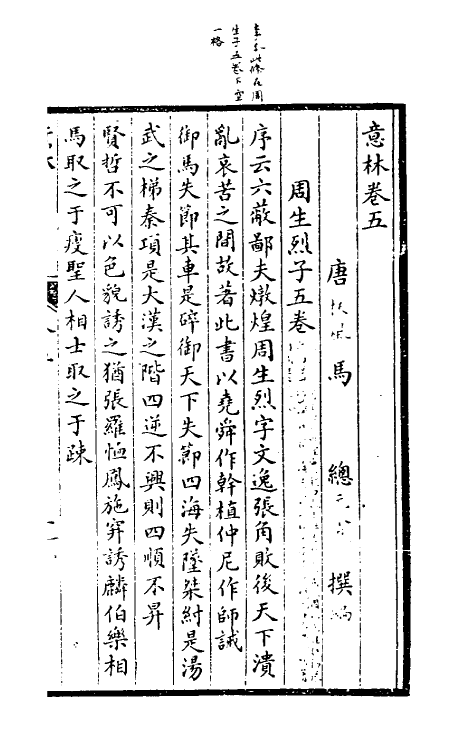 意林卷五
唐 馬 總 撰
周生烈子五卷
序云六蔽鄙夫燉煌周生烈字文逸張角敗後天下潰
亂哀苦之間故著此書以堯舜作幹植仲尼作師誡
御馬失節其車是碎御天下失節四海失墜桀紂是湯
武之梯秦項是大漢之階四逆不興則四順不昇
賢哲不可以色貌誘之猶張羅恤鳳施穽誘麟伯樂相
馬取之于瘦聖人相士取之于疎